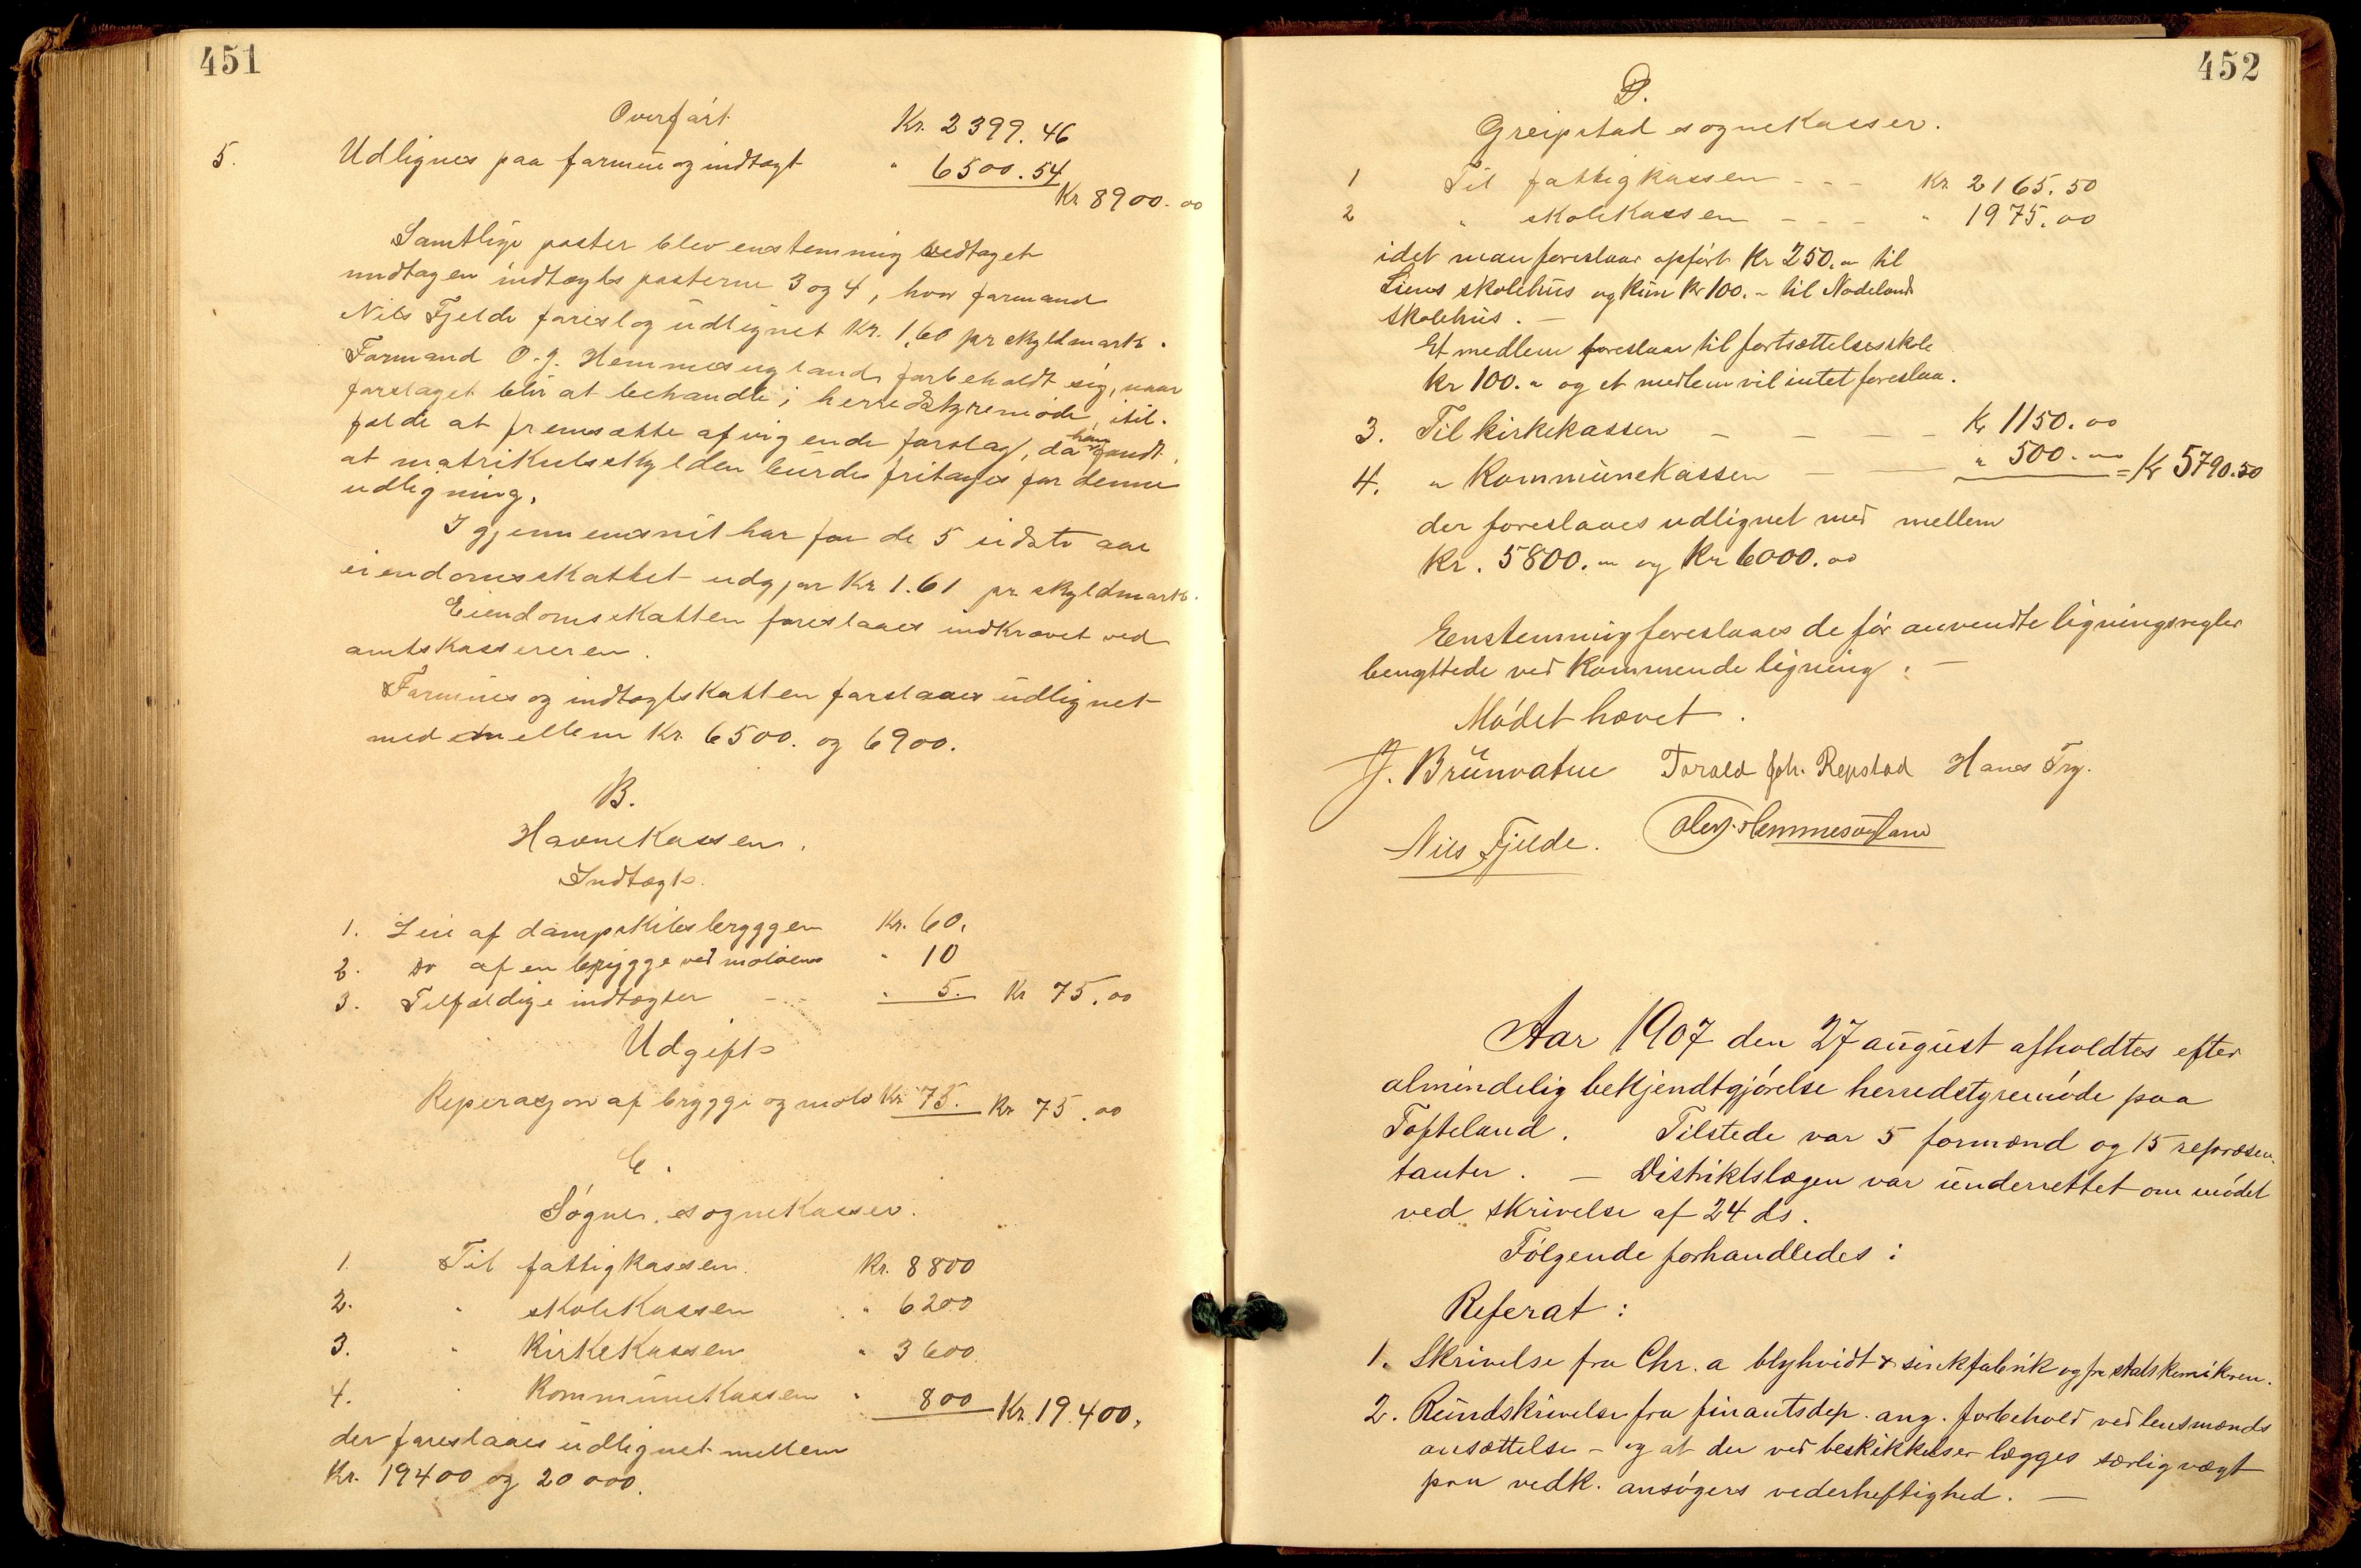 451
Overført Kr. 2399.46
5. Udlignes paa formue og indtægt " 6500.54
Kr. 8900.00
Samtlige poster blev enstemmig vedtaget
undtagen indtægts posterne 3 og 4, hvor formand
Nils Fjelde foreslog udlignet Kr. 1,60 pr skyldmark.
Formand O. J. Hemmesugland forbeholdt sig, naar
forslaget blir at behandle i herredstyremøde, itil-
fælde at fremsætte afvigende forslag, da han fandt,
at matrikulskylden burde fritages for denne
udligning.
I gjennemsnit har for de 5 sidste aar
eiendomsskattet udgjør Kr 1.61 pr. skyldmark.
Eiendomsskatten foreslaaes indkrævet ved
amtskassereren.
Formues og indtægtskatten forslaaes udlignet
med mellem Kr. 6500. og 6900.
B.
Havnekassen.
Indtægt.
1. Leie af dampskibsbryggen Kr. 60.
2. Do af en brygge ved moloen " 10
3. Tilfældige indtægter - - " 5. Kr 75.00
Udgift
Reperasjon af brygge og molo Kr. 75. Kr 75.00
C.
Søgne sognekasser.
1. Til fattigkassen. Kr. 8800
2. " skolekassen " 6200
3. " Kirkekassen " 3600
4. " Kommunekassen " 800 Kr. 19.400,
der foreslaaes udlignet mellem
Kr. 19400 og 20000.
452
D.
Greipstad sognekasser.
1 Til fattigkassen - - - Kr. 2165.50
2 " skolekassen - - - " 1975.00
idet man foreslaar opført Kr 250.- til
Liens skolehus og kun Kr 100.- til Nodeland
skolehus. -
Et medlem foreslaar til fortsættelsesskole
Kr 100.- og et medlem vil intet foreslaa.
3. Til kirkekassen - - - - Kr 1150.00
4. " Kommunekassen - - " 500.- = Kr 5790.50
der foreslaaes udlignet med mellem
Kr. 5800.- og Kr 6000.00
Eenstemmig foreslaaes de før anvendte ligningsregler
benyttede ved kommende ligning. -
Mødet hævet.
J. Brunvatne Torald Joh. Repstad Hans Try.
Nils Fjelde. Olev J. Hemmesugland
Aar 1907 den 27 august afholdtes efter
almindelig bekjendtgjørelse herredstyremøde paa
Tofteland. Tilstede var 5 formænd og 15 repræsen-
tanter. - Distriktslægen var underrettet om mødet
ved skrivelse af 24 ds.
Følgende forhandledes:
Referat:
1. Skrivelse fra Chr. a blyhvidt & sinkfabrik og fra statskemikeren.
2. Rundskrivelse fra finantsdep. ang. forbehold ved lensmænds
ansættelse - og at der ved beskikkelser lægges særlig vægt
paa vedk. ansøgers vederheftighed. -